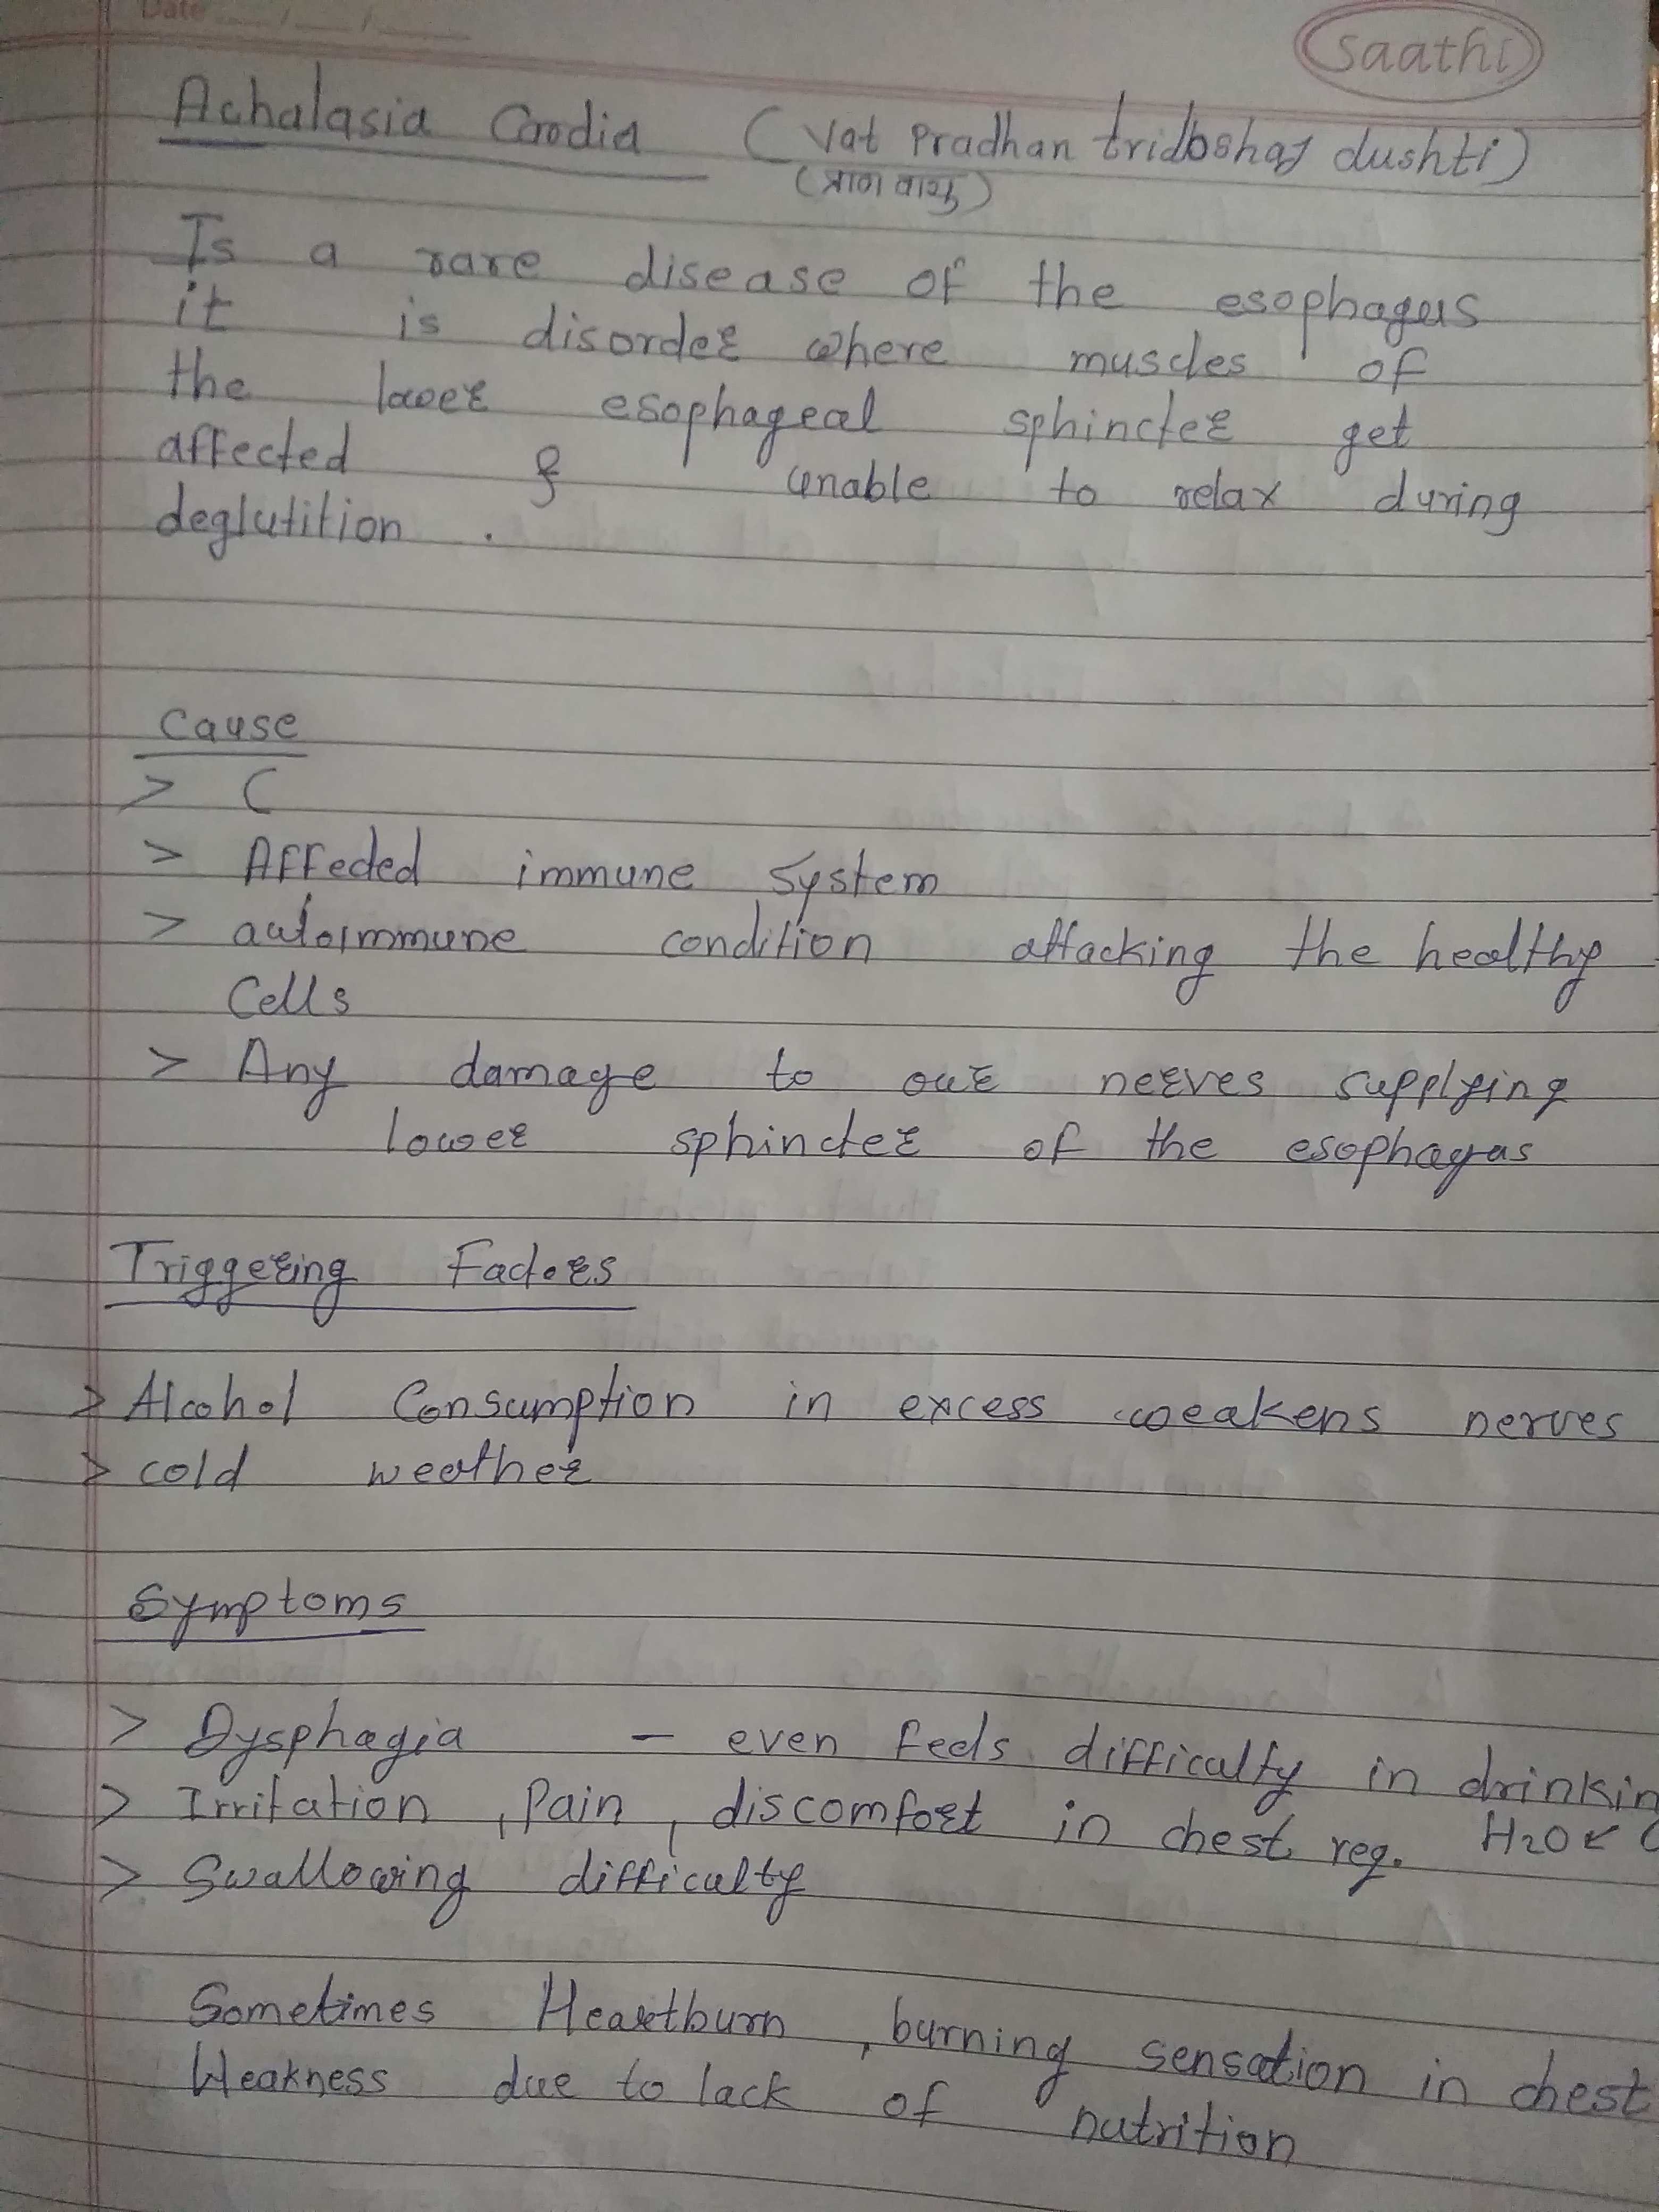 Date ___/___/___
Saathi
Achalasia Cardia (Vat Pradhan tridoshaj dushti)
(प्राण वायु)
Is a rare disease of the esophagus
it is disorder where muscles of
the lower esophageal sphincter get
affected & unable to relax during
deglutition .
Cause
> C
> Affected immune system
> autoimmune condition attacking the healthy
Cells
> Any damage to our nerves supplying
lower sphincter of the esophagus
Triggering Factors
> Alcohol Consumption in excess weakens nerves
> cold weather
Symptoms
> Dysphagia – even feels difficulty in drinkin
> Irritation , Pain , discomfort in chest reg. H2O
> Swallowing difficulty
Sometimes Heartburn , burning sensation in chest
Weakness due to lack of nutrition